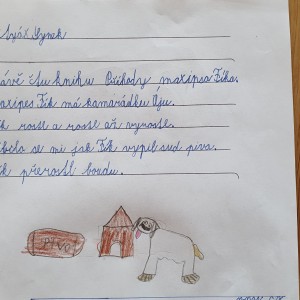 Synek
ávě čtu knihu Příhody maxipsa Fíka.
axipes Fík má kamarádku Áju.
k rostl a rostl až vyrostl.
íbilo se mi jak Fík vypil sud piva.
k přerostl boudu.
Pivo